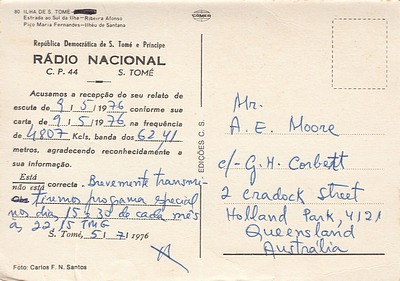 80 ILHA DE S. TOMÉ
Estrada ao Sul da Ilha—Ribeira Afonso
Pico Maria Fernandes—Ilhéu de Santana
República Democrática de S. Tomé e Príncipe
RÁDIO NACIONAL
C. P. 44 S. TOMÉ
Acusamos a recepção do seu relato de
escuta de 9/5/1976 conforme sua
carta de 9/5/1976 na frequência
de 4807 Kcls, banda dos 62,41
metros, agradecendo reconhecidamente a
sua informação.
Está
não está correcta. Brevemente transmi-
tiremos programa especial
nos dias 15 e 30 de cada mês
às 22,15 TMG
S. Tomé, 5/7/1976
Foto: Carlos F. N. Santos
EDIÇÕES C. S.
Mr.
A. E. Moore
c/- G. H. Corbett
2 Cradock Street
Holland Park, 4121
Queensland
Australia